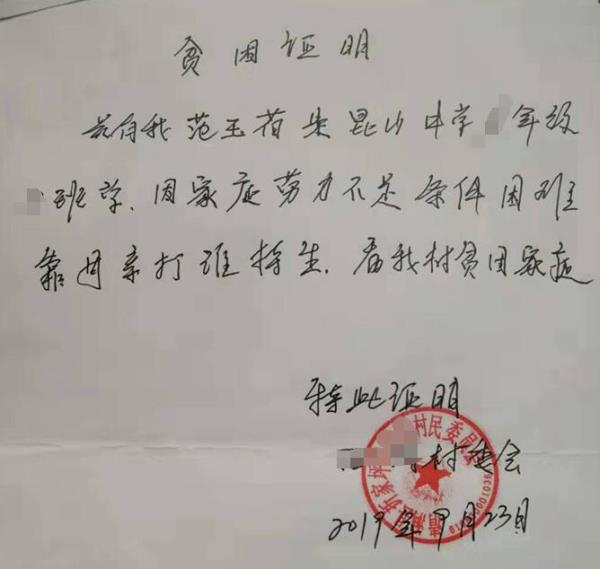 贫困证明
兹有我范玉荷朱昆山中学 年级
班学.因家庭劳力不足条件困难
靠母亲打维持生.为我村贫困家庭
特此证明
村委会
村民委员会
2019年 月23日